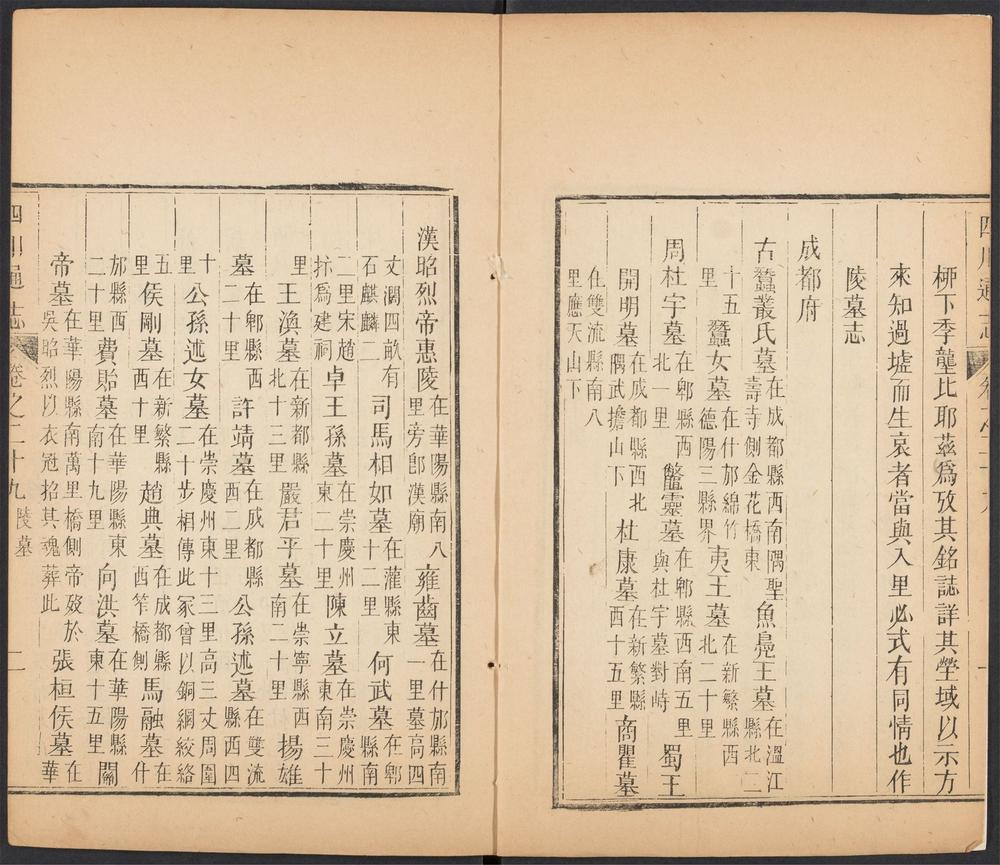 四川通志
柳下季壟比耶茲為攷其銘誌詳其塋域以示方
來知過墟而生哀者當與入里必式有同情也作
陵墓志
成都府
古蠶叢氏墓在成都縣西南隅聖壽寺側金花橋東魚鳧王墓在溫江縣北二
十五里蠶女墓在什邡綿竹德陽三縣界夷王墓在新繁縣西北二十里
周杜宇墓在郫縣西北一里鱉靈墓在郫縣西南五里與杜宇墓對峙蜀王
開明墓在成都縣西北隅武擔山下杜康墓在新繁縣西十五里商瞿墓
在雙流縣南八里應天山下
漢昭烈帝惠陵在華陽縣南八里旁卽漢廟雍齒墓在什邡縣南一里墓高四
丈濶四畝有石麒麟二司馬相如墓在灌縣東十二里何武墓在郫縣南
二里宋趙抃為建祠卓王孫墓在崇慶州東二十里陳立墓在崇慶州東南三十
里王渙墓在新都縣北十三里嚴君平墓在崇寧縣西南二十里揚雄
墓在郫縣西二十里許靖墓在成都縣西二里公孫述墓在雙流縣西四
十里公孫述女墓在崇慶州東十三里高三丈周圍二十步相傳此冢曾以銅綱絞絡
五里侯剛墓在新繁縣西十里趙典墓在成都縣西笮橋側馬融墓在什
邡縣西二十里費貽墓在華陽縣東南十九里向洪墓在華陽縣東十五里關
帝墓在華陽縣南萬里橋側帝歿於吳昭烈以衣冠招其魂葬此張桓侯墓在華
四川通志 卷之二十九 陵墓 二